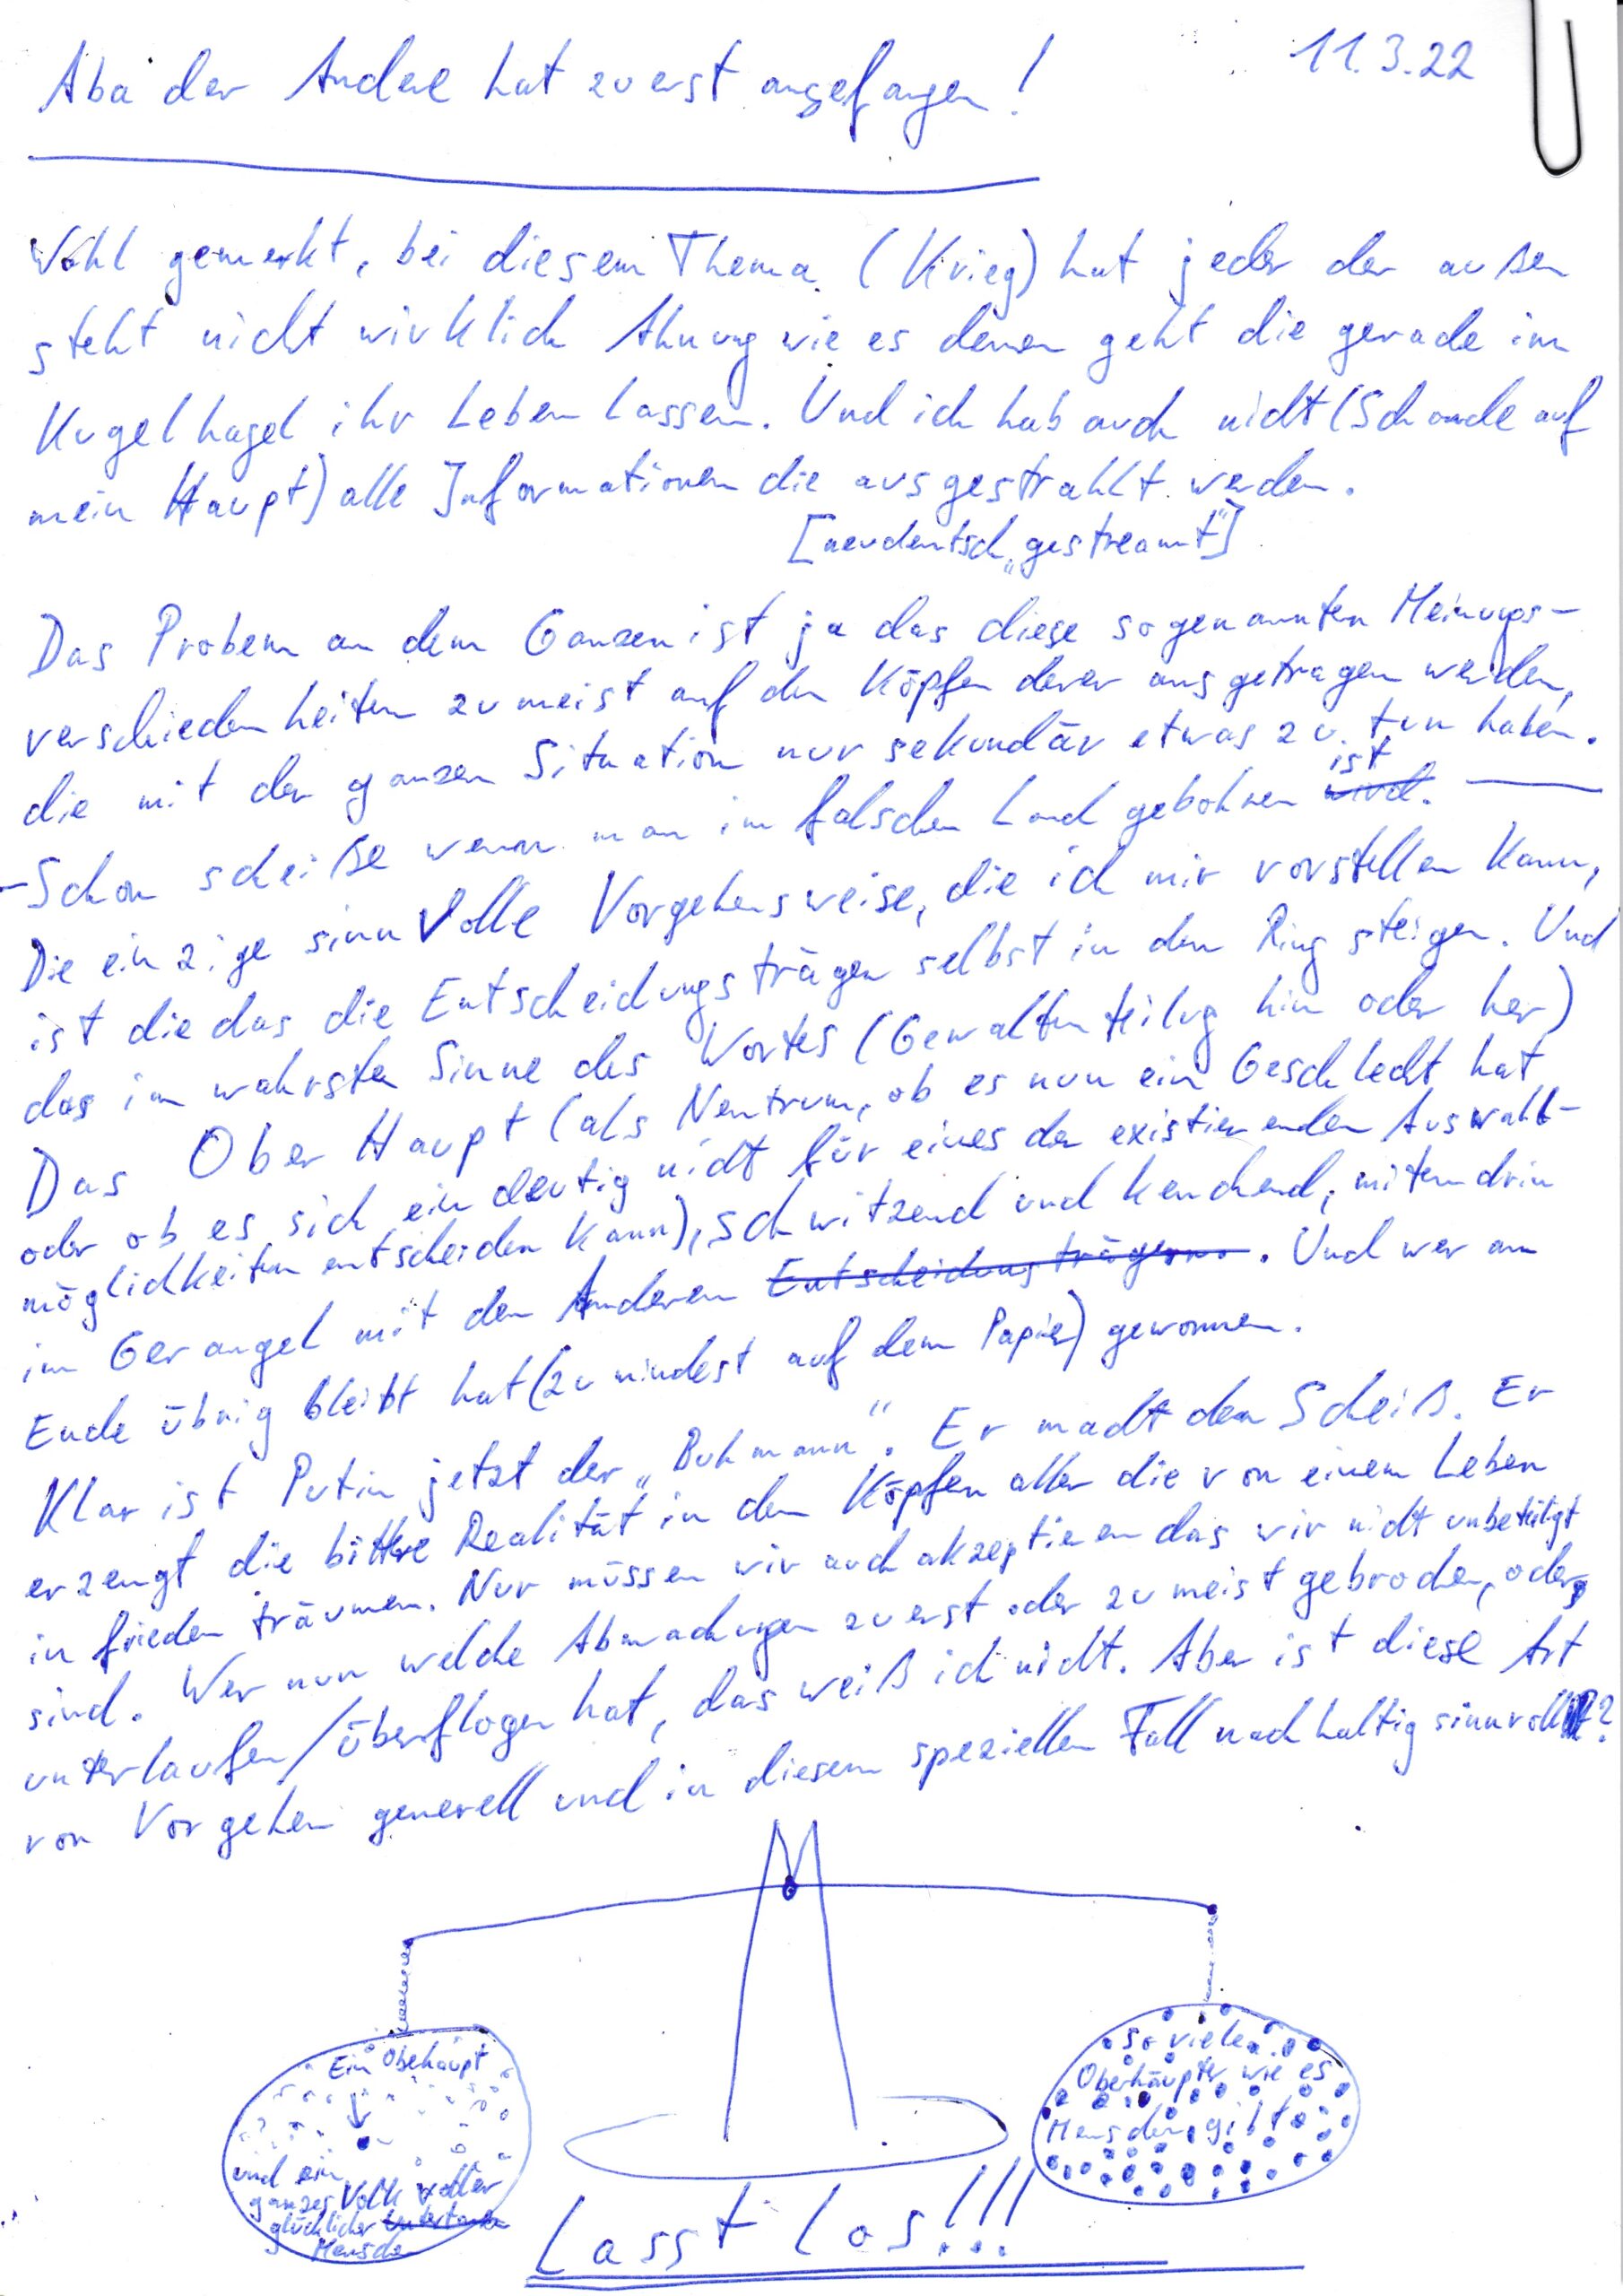 11.3.22
Aba der Andere hat zuerst angefangen!
Wohl gemerkt, bei diesem Thema (Krieg) hat jeder der außen
steht nicht wirklich Ahnung wie es denen geht die gerade im
Kugelhagel ihr Leben lassen. Und ich hab auch nicht (Schande auf
mein Haupt) alle Informationen die ausgestrahlt werden.
[neudeutsch „gestreamt"]
Das Probem an dem Ganzen ist ja das diese sogenannten Meinungs-
verschiedenheiten zumeist auf den Köpfen derer ausgetragen werden,
die mit der ganzen Situation nur sekundär etwas zu tun haben.
- Schon scheiße wenn man im falschen Land gebohren ist wird. -
Die einzige sinnvolle Vorgehensweise, die ich mir vorstellen kann,
ist die das die Entscheidungsträger selbst in den Ring steigen. Und
das im wahrsten Sinne des Wortes (Gewaltenteilug hin oder her)
Das Ober Haupt (als Neutrum, ob es nun ein Geschlecht hat
oder ob es sich eindeutig nicht für eines der existierenden Auswahl-
möglichkeiten entscheiden kann), schwitzend und keuchend, mitendrin
im Gerangel mit den Anderen Entscheidungsträgern. Und wer am
Ende übrig bleibt hat (zumindest auf dem Papier) gewonnen.
Klar ist Putin jetzt der „Buhmann". Er macht den Scheiß. Er
erzeugt die bittere Realität in den Köpfen aller die von einem Leben
in frieden träumen. Nur müssen wir auch akzeptieren das wir nicht unbeteiligt
sind. Wer nun welche Abmachungen zuerst oder zumeist gebrochen, oder
unterlaufen/überflogen hat, das weiß ich nicht. Aber ist diese Art
von Vorgehen generell und in diesem speziellen Fall nachhaltig sinnvoll?
Ein Obehaupt
und ein
ganzes Volk voller
glücklicher Untertanen
Menschen
so viele
Oberhäupter wie es
Menschen gibt
Lasst Los!!!